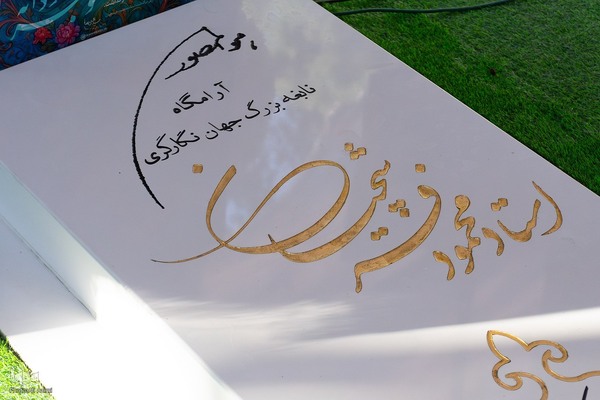 هو المصور
آرامگاه
نابغه بزرگ جهان نگارگری
استاد محمود
فرشچیان